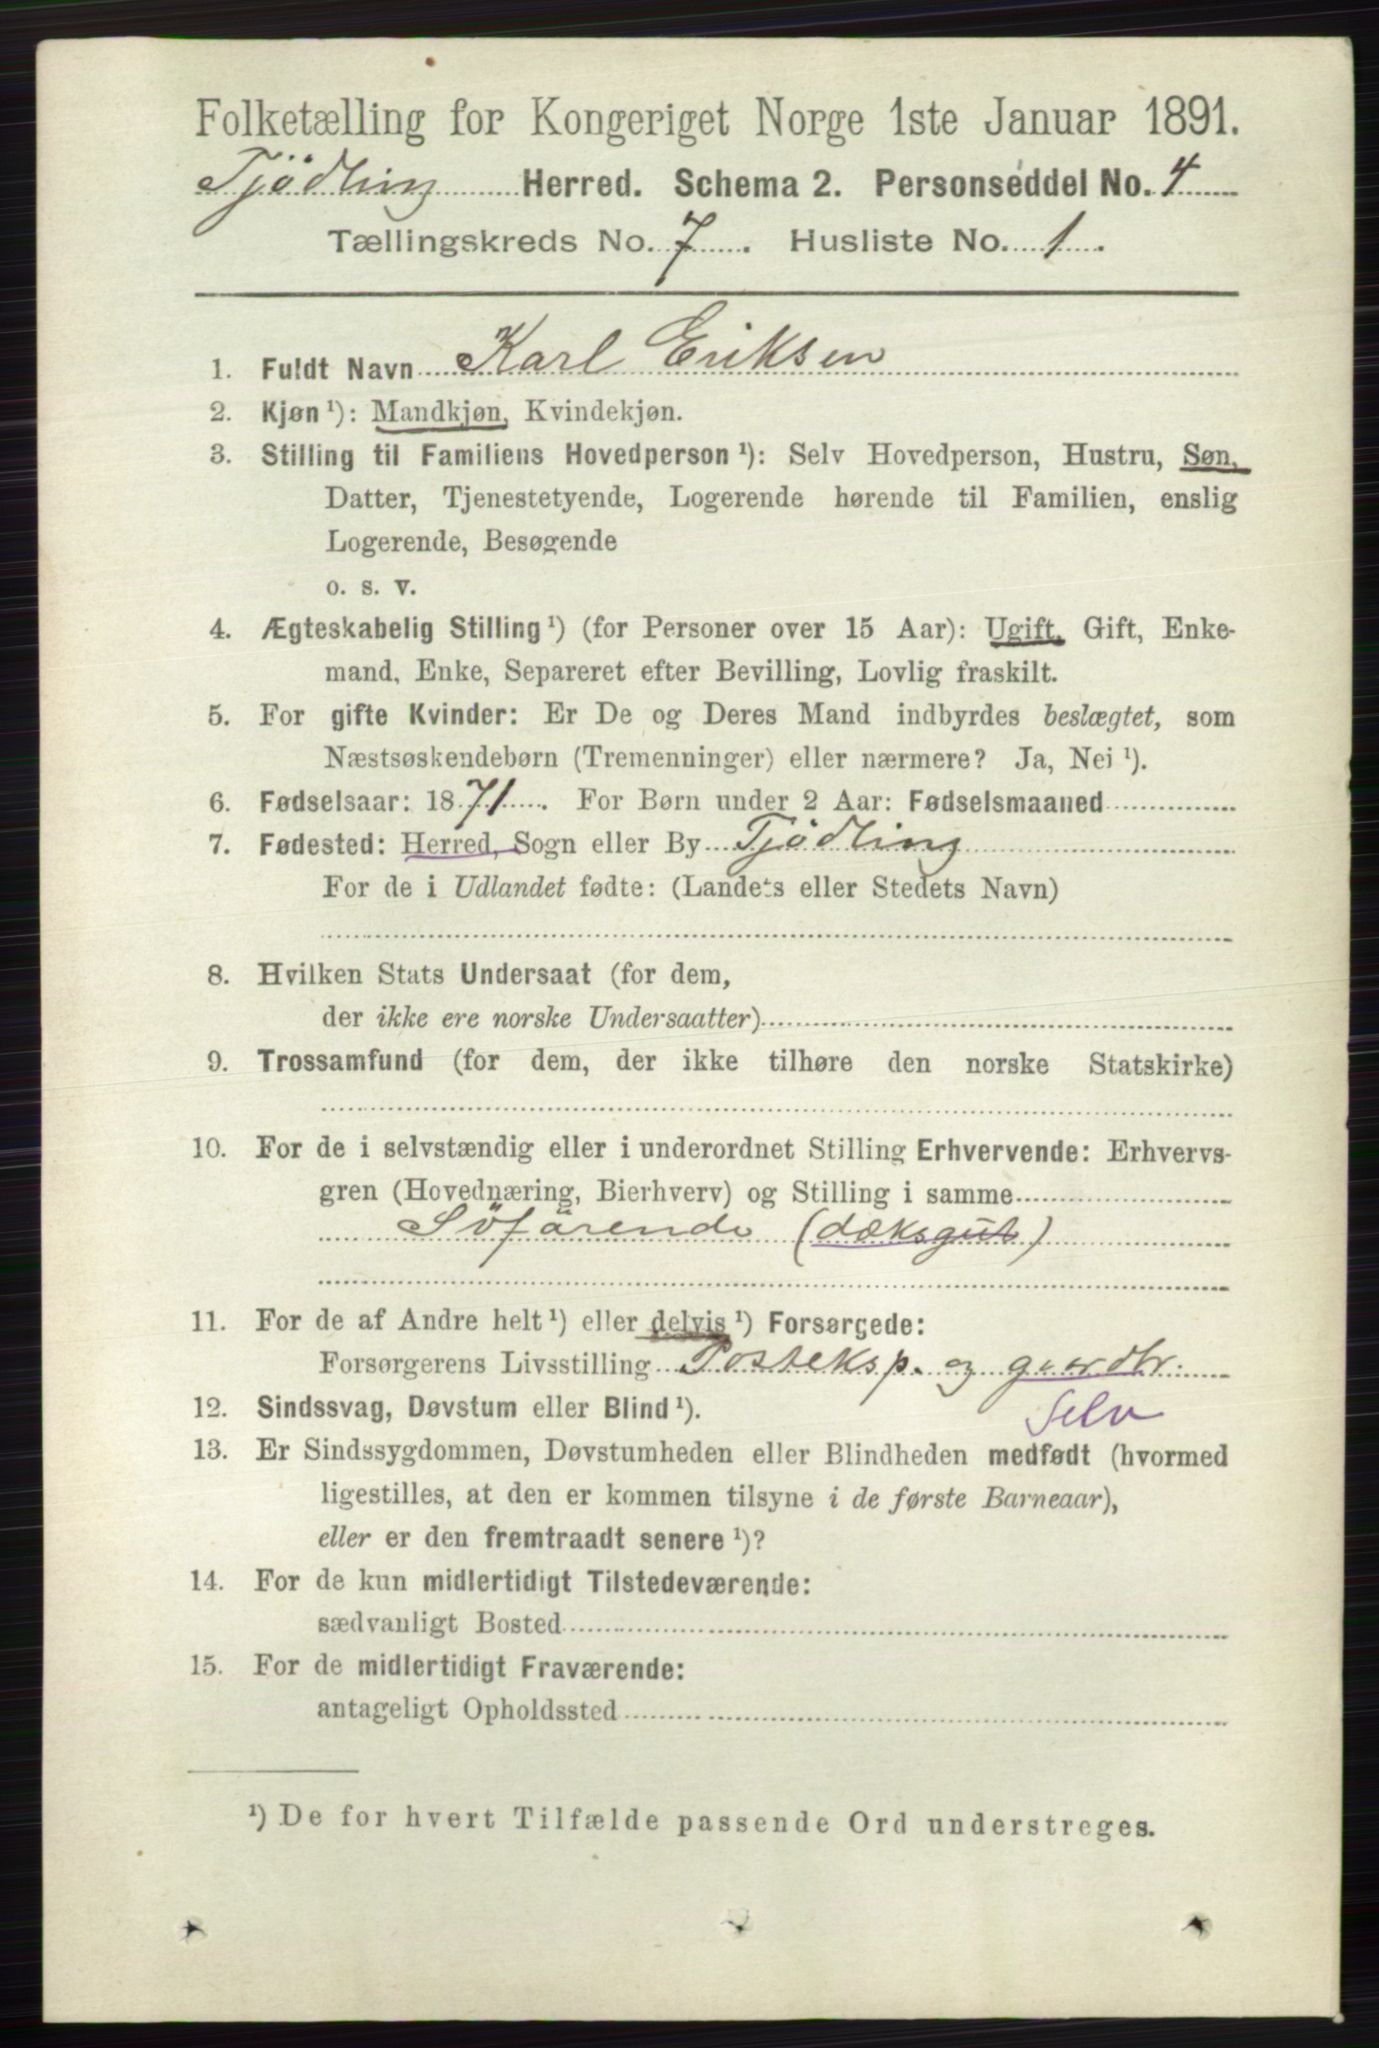 Folketælling for Kongeriget Norge 1ste Januar 1891.
Tjödling Herred. Schema 2. Personseddel No. 4
Tællingskreds No. 7. Husliste No. 1.
1. Fuldt Navn Karl Eriksen
2. Kjøn ¹): Mandkjøn, Kvindekjøn.
3. Stilling til Familiens Hovedperson ¹): Selv Hovedperson, Hustru, Søn,
Datter, Tjenestetyende, Logerende hørende til Familien, enslig
Logerende, Besøgende
o. s. v.
4. Ægteskabelig Stilling ¹) (for Personer over 15 Aar): Ugift, Gift, Enke-
mand, Enke, Separeret efter Bevilling, Lovlig fraskilt.
5. For gifte Kvinder: Er De og Deres Mand indbyrdes beslægtet, som
Næstsøskendebørn (Tremenninger) eller nærmere? Ja, Nei ¹).
6. Fødselsaar: 1871. For Børn under 2 Aar: Fødselsmaaned
7. Fødested: Herred, Sogn eller By Tjödling
For de i Udlandet fødte: (Landets eller Stedets Navn)
8. Hvilken Stats Undersaat (for dem,
der ikke ere norske Undersaatter)
9. Trossamfund (for dem, der ikke tilhøre den norske Statskirke)
10. For de i selvstændig eller i underordnet Stilling Erhvervende: Erhvervs-
gren (Hovednæring, Bierhverv) og Stilling i samme
Söfårende (dæksgut)
11. For de af Andre helt ¹) eller delvis ¹) Forsørgede:
Forsørgerens Livsstilling Posteksp. og gaardbr.
12. Sindssvag, Døvstum eller Blind ¹). Selv
13. Er Sindssygdommen, Døvstumheden eller Blindheden medfødt (hvormed
ligestilles, at den er kommen tilsyne i de første Barneaar),
eller er den fremtraadt senere ¹)?
14. For de kun midlertidigt Tilstedeværende:
sædvanligt Bosted
15. For de midlertidigt Fraværende:
antageligt Opholdssted
¹) De for hvert Tilfælde passende Ord understreges.